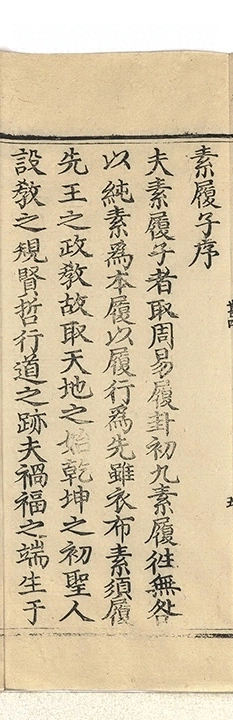 素履子序
夫素履子者取周易履卦初九素履往無咎
以純素為本履以履行為先雖衣布素須履
先王之政教故取天地之始乾坤之初聖人
設教之規賢哲行道之跡夫禍福之端生于